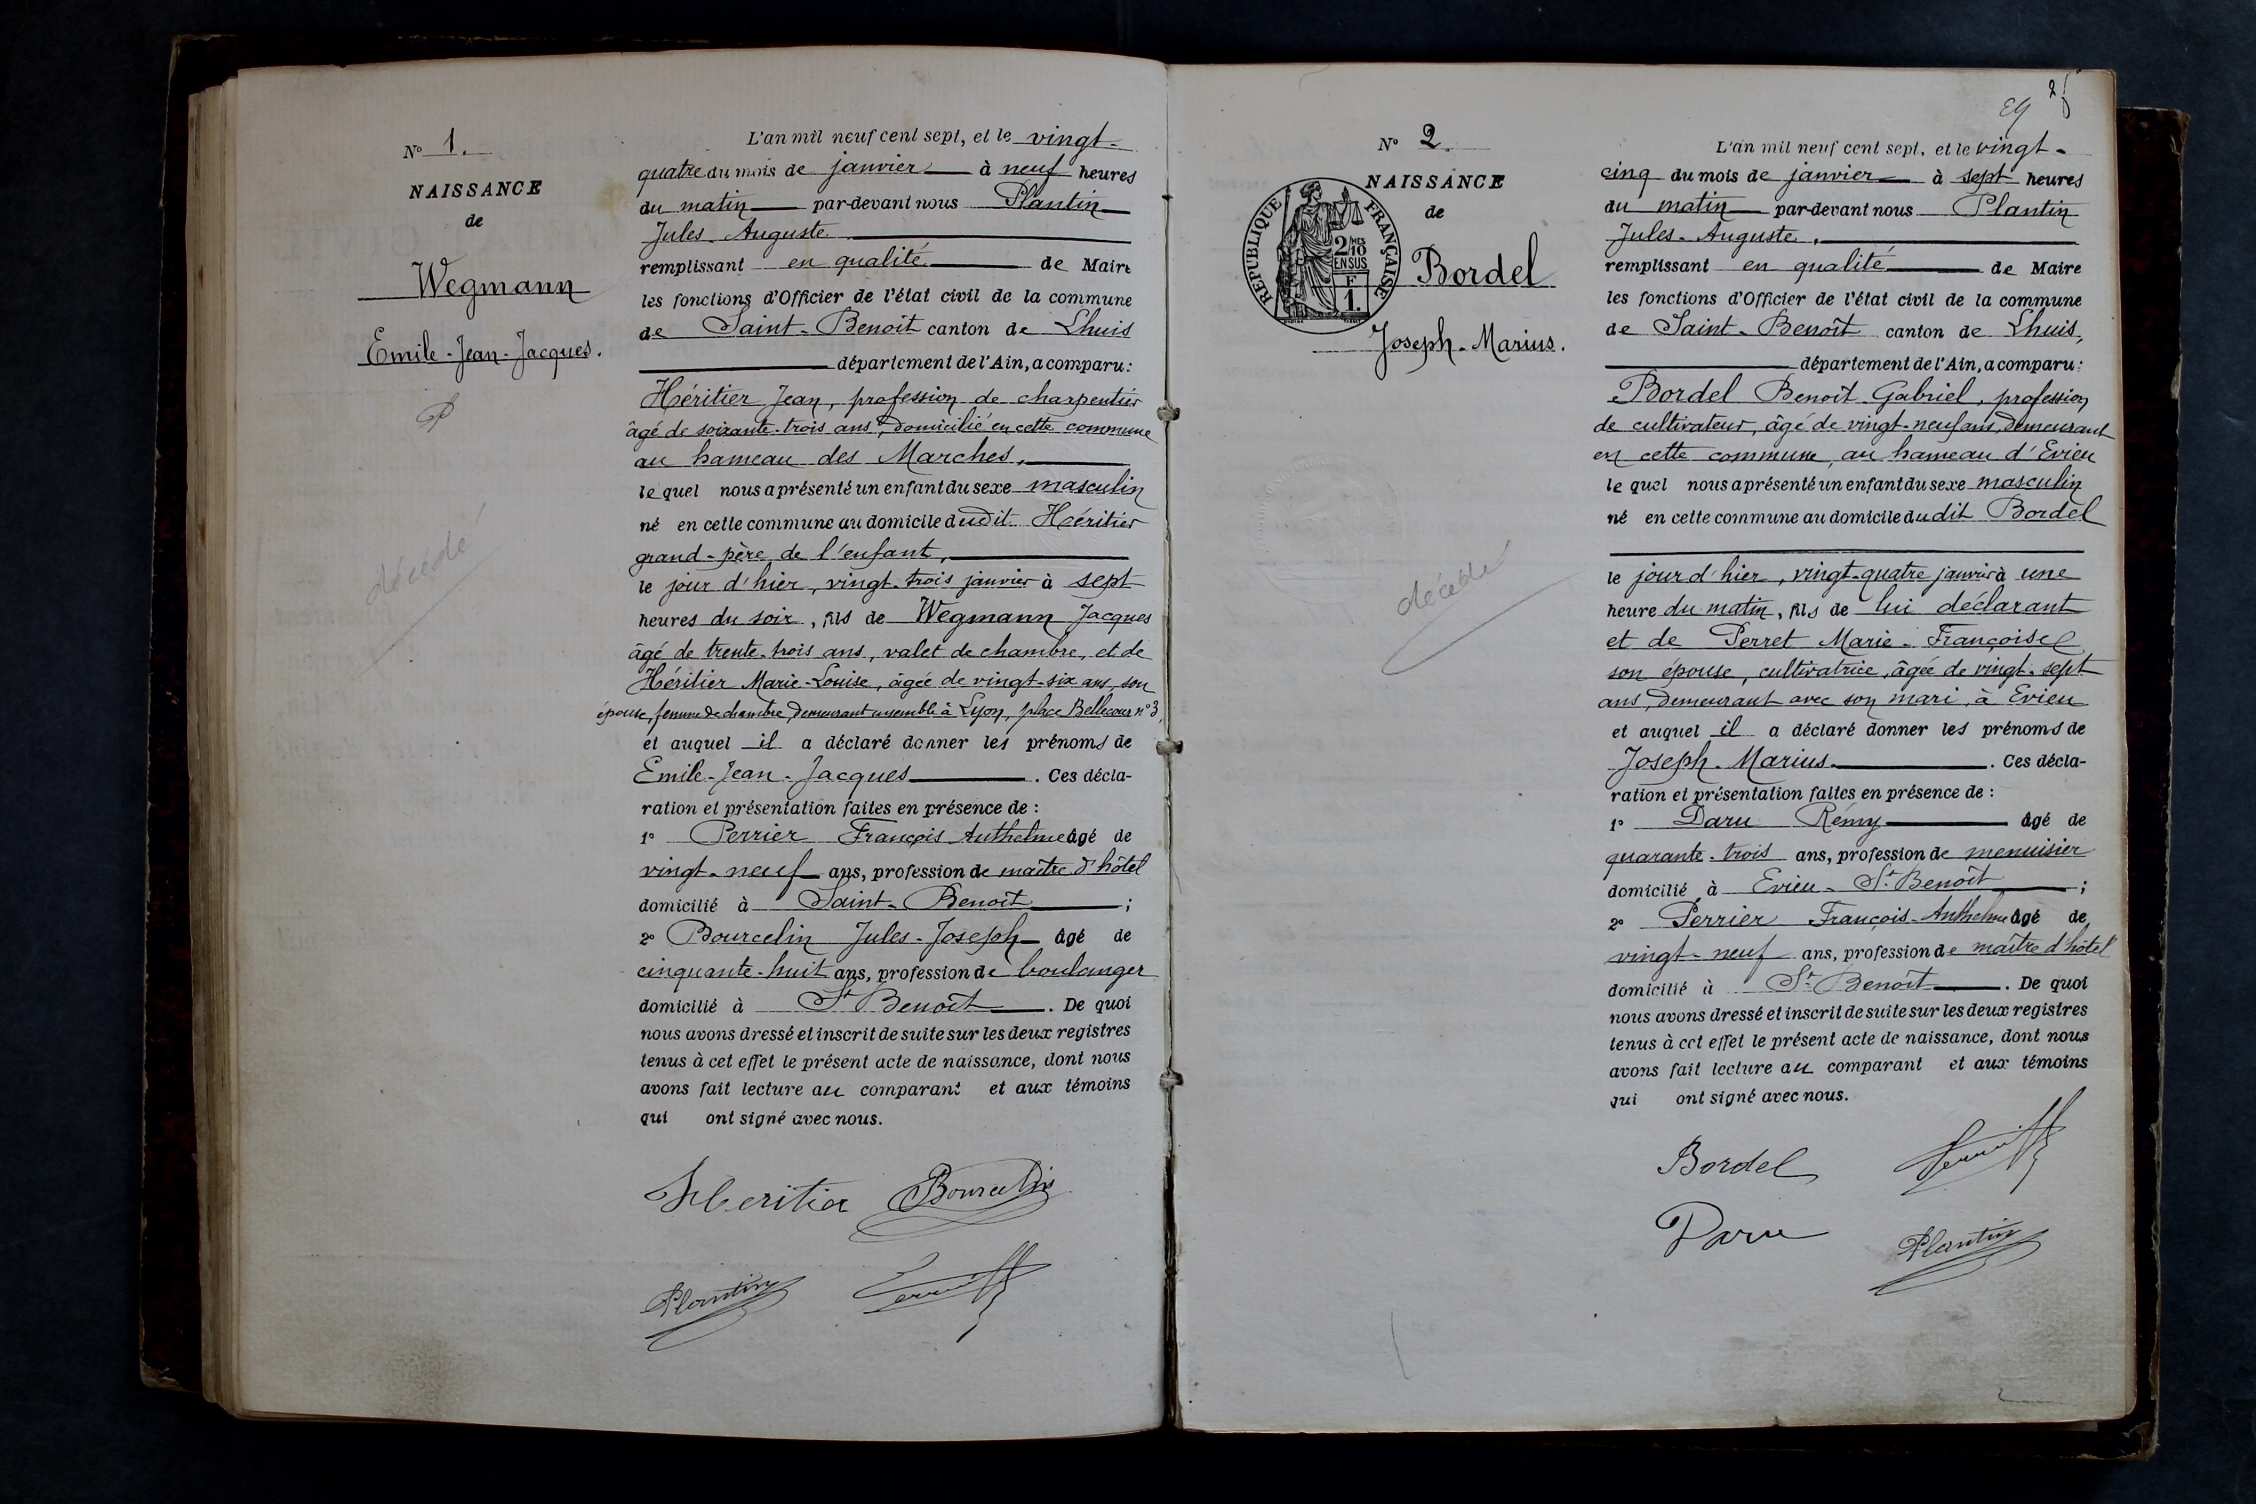 N° 1.
NAISSANCE
de
Wegmann
Emile-Jean-Jacques.
décédé
L'an mil neuf cent sept, et le vingt-
quatre du mois de janvier à neuf heures
du matin par-devant nous Plantin
Jules-Auguste
remplissant en qualité de Maire
les fonctions d'Officier de l'état civil de la commune
de Saint-Benoit canton de Lhuis
département de l'Ain, a comparu:
Héritier Jean, profession de charpentier
âgé de soixante-trois ans, domicilié en cette commune
au hameau des Marches,
lequel nous a présenté un enfant du sexe masculin
né en cette commune au domicile dudit Héritier
grand-père de l'enfant,
le jour d'hier, vingt-trois janvier à sept
heures du soir, fils de Wegmann Jacques
âgé de trente-trois ans, valet de chambre, et de
Héritier Marie-Louise, âgée de vingt-six ans, son
épouse, femme de chambre, demeurant ensemble à Lyon, place Bellecour n° 3,
et auquel il a déclaré donner les prénoms de
Emile-Jean-Jacques. Ces décla-
ration et présentation faites en présence de :
1° Perrier François Anthelme âgé de
vingt-neuf ans, profession de maître d'hôtel
domicilié à Saint-Benoît ;
2° Bourcelin Jules-Joseph âgé de
cinquante-huit ans, profession de boulanger
domicilié à St Benoît. De quoi
nous avons dressé et inscrit de suite sur les deux registres
tenus à cet effet le présent acte de naissance, dont nous
avons fait lecture au comparant et aux témoins
qui ont signé avec nous.
Héritier Bourcelin
Plantin Perrier
N° 2.
NAISSANCE
de
Bordel
Joseph-Marius.
RÉPUBLIQUE FRANÇAISE
2/10 EN SUS
F
1
décédé
25
L'an mil neuf cent sept, et le vingt-
cinq du mois de janvier à sept heures
du matin par-devant nous Plantin
Jules-Auguste,
remplissant en qualité de Maire
les fonctions d'Officier de l'état civil de la commune
de Saint-Benoît canton de Lhuis,
département de l'Ain, a comparu:
Bordel Benoît-Gabriel, profession
de cultivateur, âgé de vingt-neuf ans, demeurant
en cette commune, au hameau d'Evieu
lequel nous a présenté un enfant du sexe masculin
né en cette commune au domicile dudit Bordel
le jour d'hier, vingt-quatre janvier à une
heure du matin, fils de lui déclarant
et de Perret Marie-Françoise
son épouse, cultivatrice, âgée de vingt-sept
ans, demeurant avec son mari, à Evieu
et auquel il a déclaré donner les prénoms de
Joseph-Marius. Ces décla-
ration et présentation faites en présence de :
1° Daru Rémy âgé de
quarante-trois ans, profession de menuisier
domicilié à Evieu-St Benoît ;
2° Perrier François-Anthelme âgé de
vingt-neuf ans, profession de maître d'hôtel
domicilié à St Benoît. De quoi
nous avons dressé et inscrit de suite sur les deux registres
tenus à cet effet le présent acte de naissance, dont nous
avons fait lecture au comparant et aux témoins
qui ont signé avec nous.
Bordel Perrier
Daru Plantin